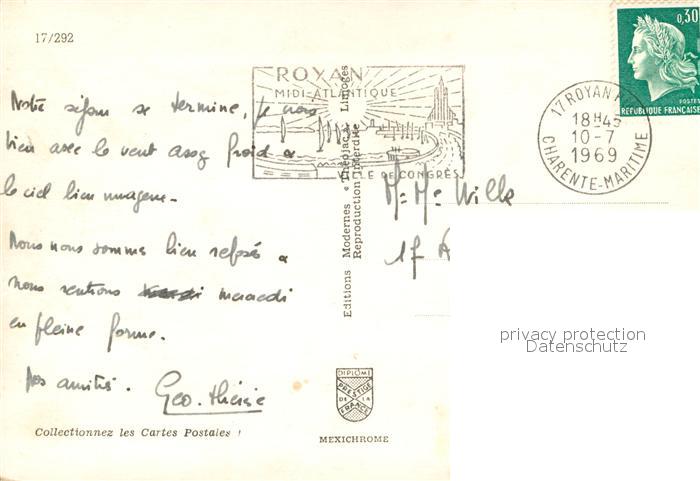 17/292
ROYAN
MIDI-ATLANTIQUE
VILLE DE CONGRÈS
0,30
POSTES
REPUBLIQUE FRANÇAISE
17 ROYAN
18H45
10-7
1969
CHARENTE-MARITIME
Notre séjour se termine, je
bien avec le vent assez froid &
le ciel bien nuageux.
Nous nous sommes bien reposés &
nous rentrons mercredi
en pleine forme.
Nos amitiés. Geo. Thérèse
Editions Modernes « Théojac » Limoges
Reproduction interdite
M. Me Wilk
17
privacy protection
Datenschutz
DIPLOME
PRESTIGE
DE LA
FRANCE
Collectionnez les Cartes Postales !
MEXICHROME